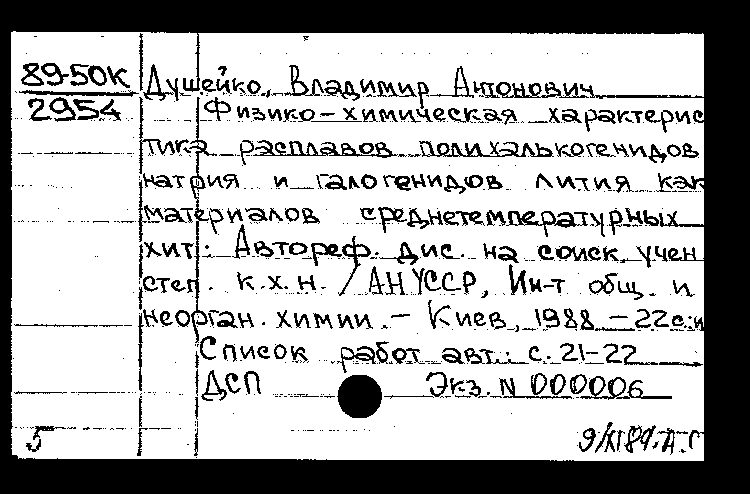 89-50К Душейко, Владимир Антонович
2954 Физико-химическая характерис
тика расплавов полихалькогенидов
натрия и галогенидов лития как
материалов среднетемпературных
хит: Автореф. дис. на соиск. учен
степ. к.х.н. / АН УССР, Ин-т общ. и
неорган. химии. – Киев, 1988 – 22с.:и
Список работ авт.: с. 21-22
ДСП Экз. N 000006
5 9/XI89.